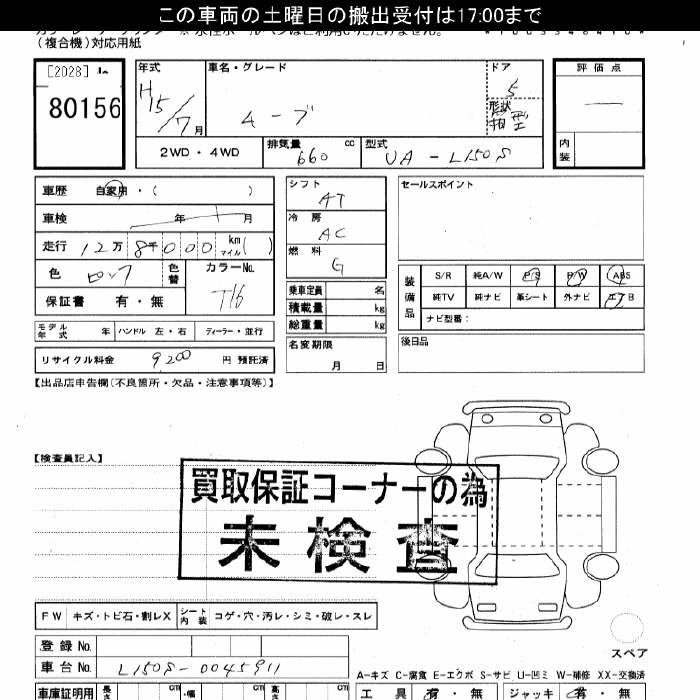 この車両の土曜日の搬出受付は17:00まで
(複合機)対応用紙
[2028]
80156
年式 H15/7月
車名・グレード ムーブ
ドア 5
形状 箱型
評価点
内装
2WD・4WD
排気量 660 cc
型式 UA-L150S
車歴 自家用・( )
車検 年 月
走行 12万8千000 km マイル ( )
色
色替
カラーNo. T16
保証書 有・無
シフト AT
冷房 AC
燃料 G
乗車定員 名
積載量 kg
総重量 kg
セールスポイント
装備品
S/R 純A/W P/S P/W ABS
純TV 純ナビ 革シート 外ナビ エアB
ナビ型番:
モデル年式 年 ハンドル 左・右 ディーラー・並行
名変期限 月 日
後日品
リサイクル料金 9200 円 預託済
【出品店申告欄(不良箇所・欠品・注意事項等)】
【検査員記入】
買取保証コーナーの為
未検査
FW キズ・トビ石・割レX シート内装 コゲ・穴・汚レ・シミ・破レ・スレ
スペア
登録No.
車台No. L150S-0045911
A-キズ C-腐食 E-エクボ S-サビ U-凹ミ W-補修 XX-交換済
車庫証明用 長さ cm ・幅 cm 高さ cm
工具 有・無 ジャッキ 有・無